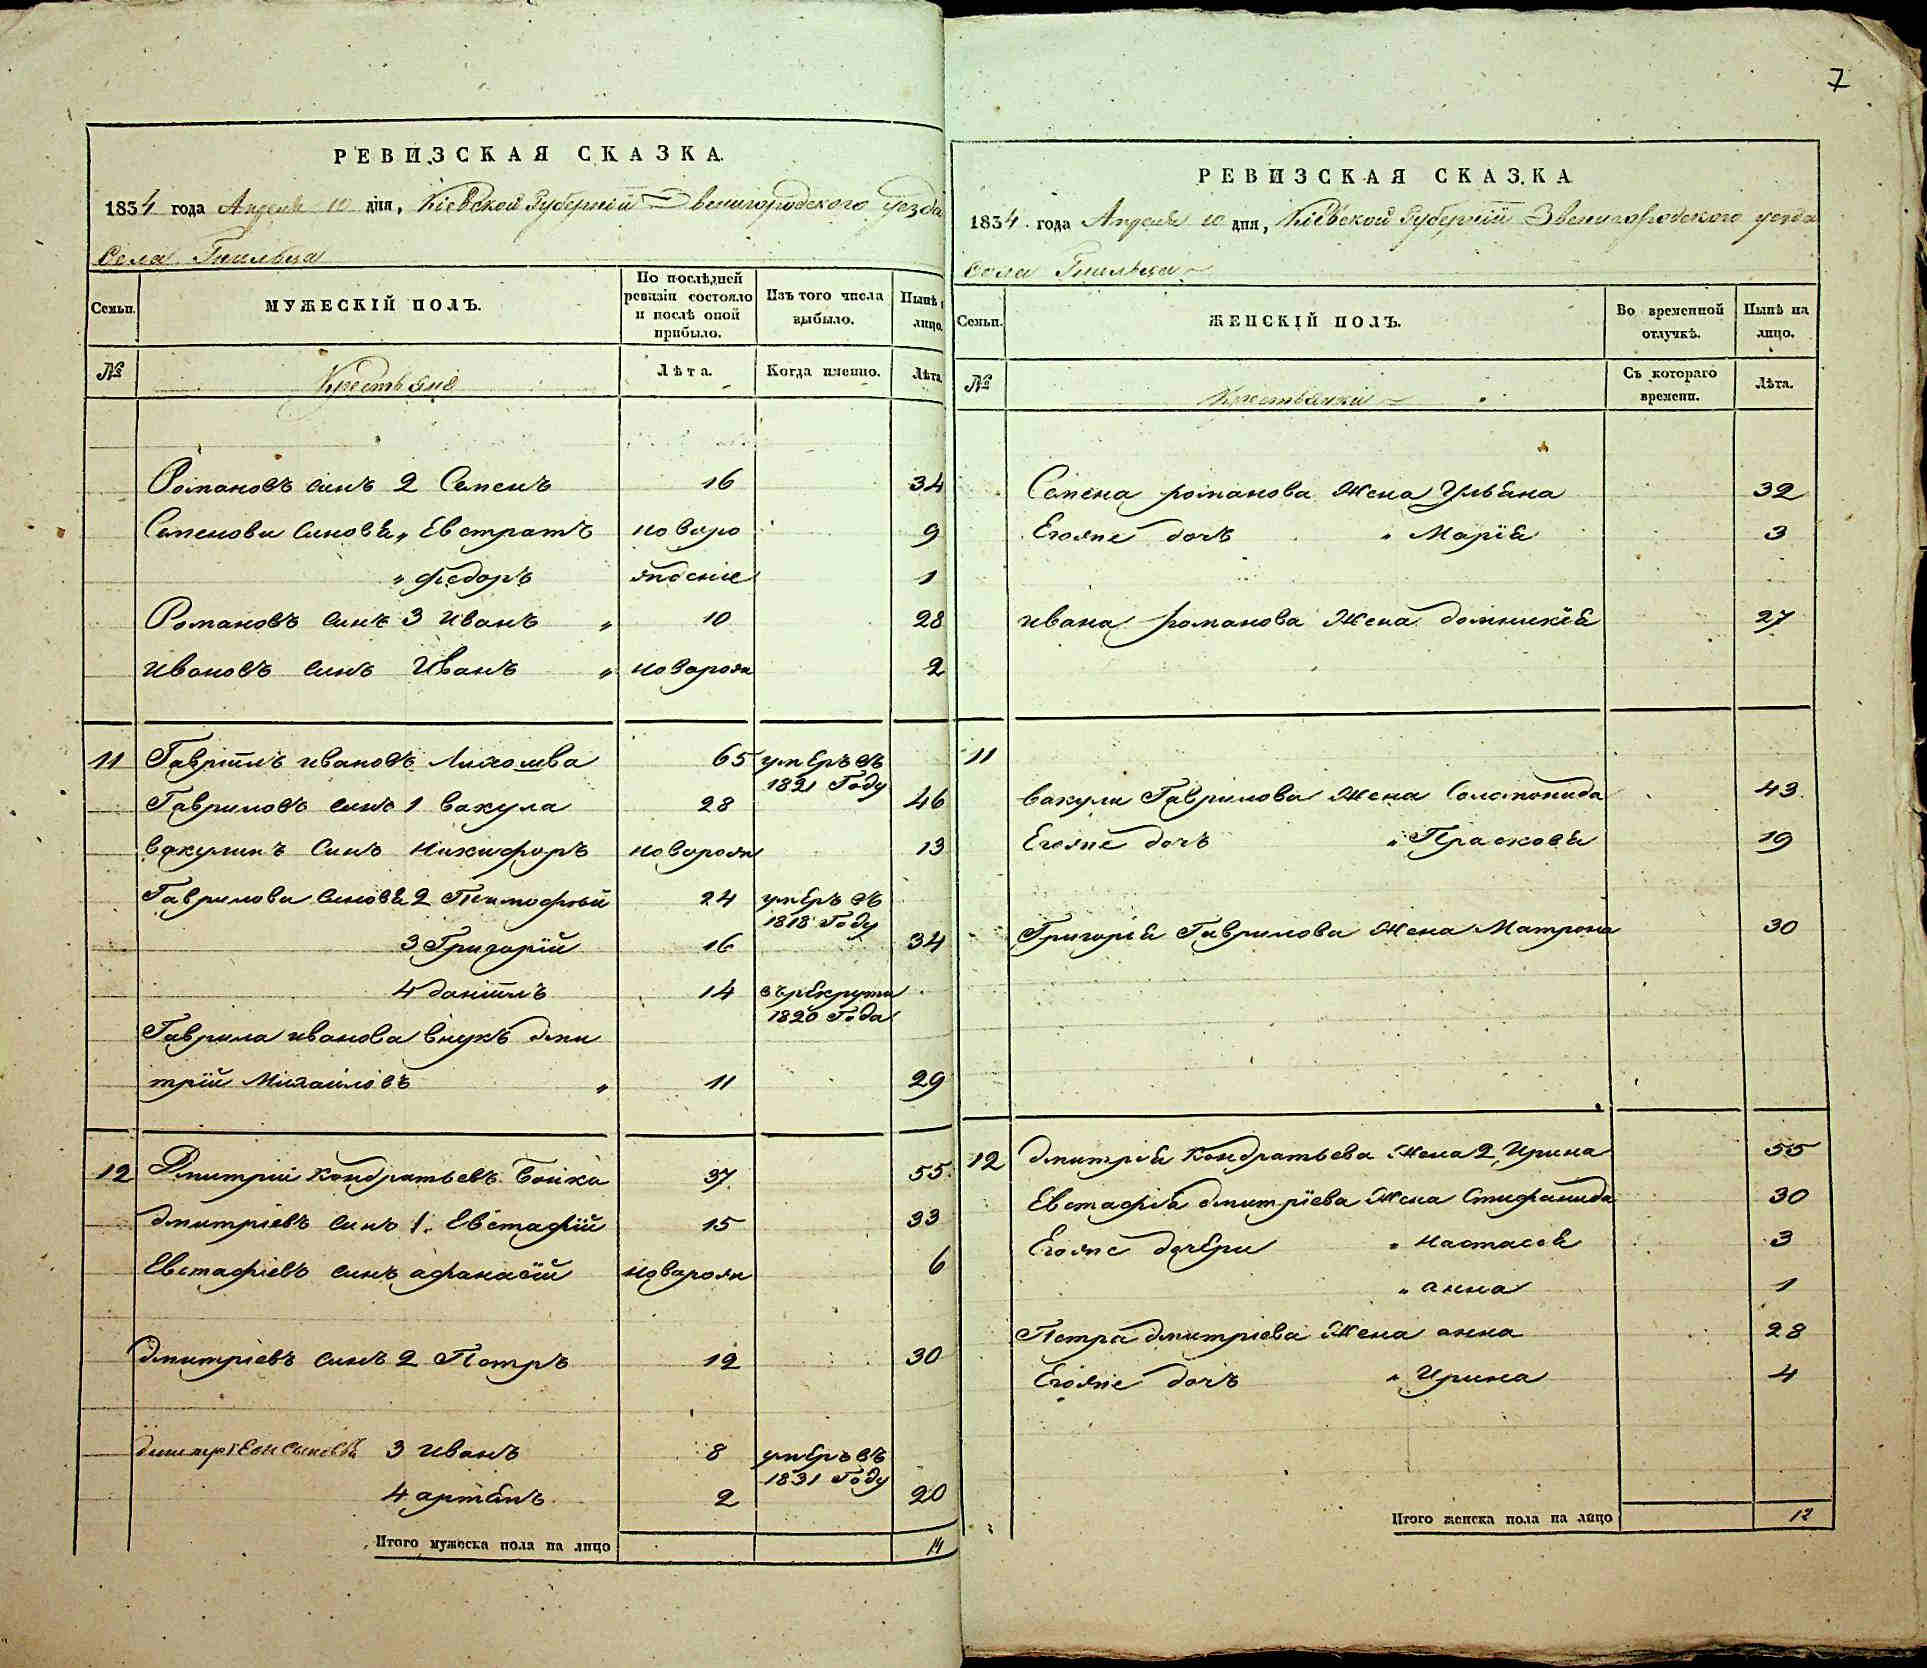 7
РЕВИЗСКАЯ СКАЗКА.
1834 года Апреля 10 дня, Кіевской Губерніи Звенигородского уезда
Села Гнильца
Семьи.
МУЖЕСКІЙ ПОЛЪ.
По послѣдней ревизіи состояло и послѣ оной прибыло.
Изъ того числа выбыло.
Нынѣ лицо.
№
Крестьяне
Лѣта.
Когда именно.
Лѣта
Романовъ синъ 2 Семенъ 16 34
Семенови Синовя „ Евстратъ новоро 9
„ Федоръ жденіе 1
Романовъ синъ 3 Иванъ „ 10 28
Ивановъ синъ Иванъ „ новорож 2
11 Гавріилъ Ивановъ 65 умеръ въ
1821 Году
Гавриловъ синъ 1 Вакула 28 46
Вакулинъ Синъ Никифоръ новорож 13
Гаврилови Синовя 2 Тимофтей 24 умеръ въ
1818 Году
3 Григорій 16 34
4 Даніилъ 14 въ рекруты
1820 Года
Гаврила Иванова внукъ Дми
трій Михаиловъ „ 11 29
12 Дмитрій Кондратьевъ Бойко 37 55
Дмитріевъ синъ 1. Евстафій 15 33
Евстафіевъ синъ Афанасій новорож 6
Дмитріевъ синъ 2 Петръ 12 30
Дмитріеви синовя 3 Иванъ 8 умеръ въ
1831 Году
4 Артемъ 2 20
Итого мужеска пола на лицо 14
РЕВИЗСКАЯ СКАЗКА
1834 года Апреля 10 дня, Кіевской Губерніи Звенигородского уезда
Села Гнильца
Семьи.
ЖЕНСКІЙ ПОЛЪ.
Во временной отлучкѣ.
Нынѣ на лицо.
№
Крестьянки
Съ котораго времени.
Лѣта.
Семена Романова Жена Ульяна 32
Егожпе дочъ „ Марія 3
Ивана Романова Жена Домникія 27
11
Вакули Гаврилови Жена Соломонида 43
Егожпе дочъ „ Прасковя 19
Григорія Гаврилова Жена Матрона 30
12 Дмитрія Кондратьева Жена 2 Ирина 55
Евстафія Дмитріева Жена Стифанида 30
Егожпе дочери „ Настася 3
„ Анна 1
Петра Дмитріева Жена Анна 28
Егожпе дочъ „ Ирина 4
Итого женска пола на лицо 12